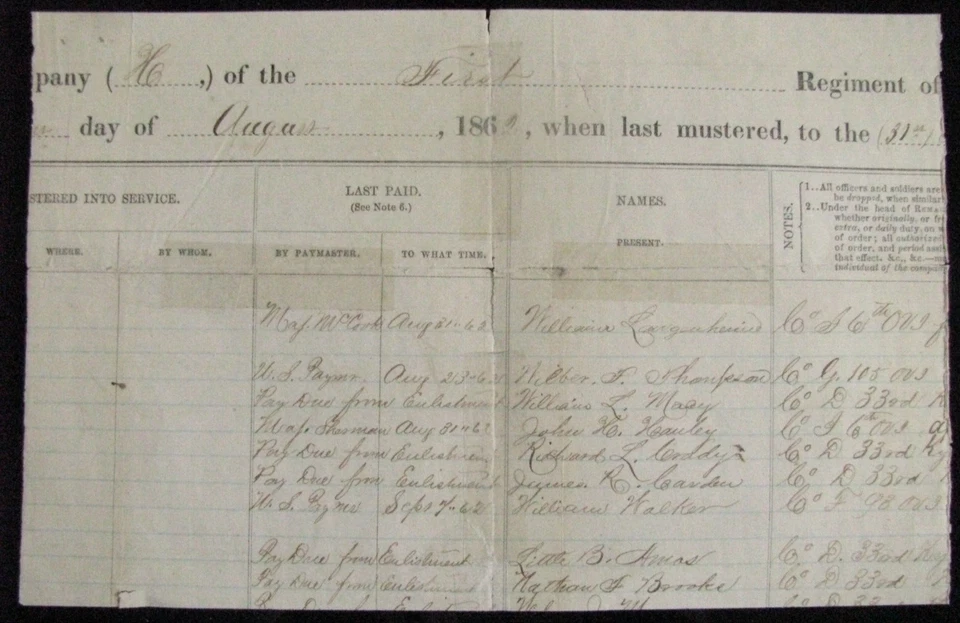 pany ( H ,) of the First Regiment of
day of August , 1862 , when last mustered, to the (31st)
STERED INTO SERVICE. LAST PAID. (See Note 6.) NAMES. NOTES.
1..All officers and soldiers are
be dropped, when similar
2..Under the head of
whether originally, or
extra, or daily duty; on
of order; all authorized
of order, and period
that effect. &c., &c.
individual of the
WHERE. BY WHOM. BY PAYMASTER. TO WHAT TIME. PRESENT.
Maj. McCook Aug 31st 62 William Co I 6th OVI
U. S. Paymr. Aug 62 Wilber. F. Thompson Co G. 105 OVI
Pay Due from Enlistment William L. Macy Co D 33rd
Maj. Sherman Aug 31st 62 John H. Hauley Co I 6th OVI
Pay Due from Enlistment Richard L. Co D. 33rd Ky
Pay Due from Enlistment James R. Carden Co D 33rd
U. S. Paymr Sept 62 William Walker Co F 98 OVI
Pay Due from Enlistment B. Amos Co D. 33rd
Pay Due from Enlistment Nathan F Brooks Co D 33rd